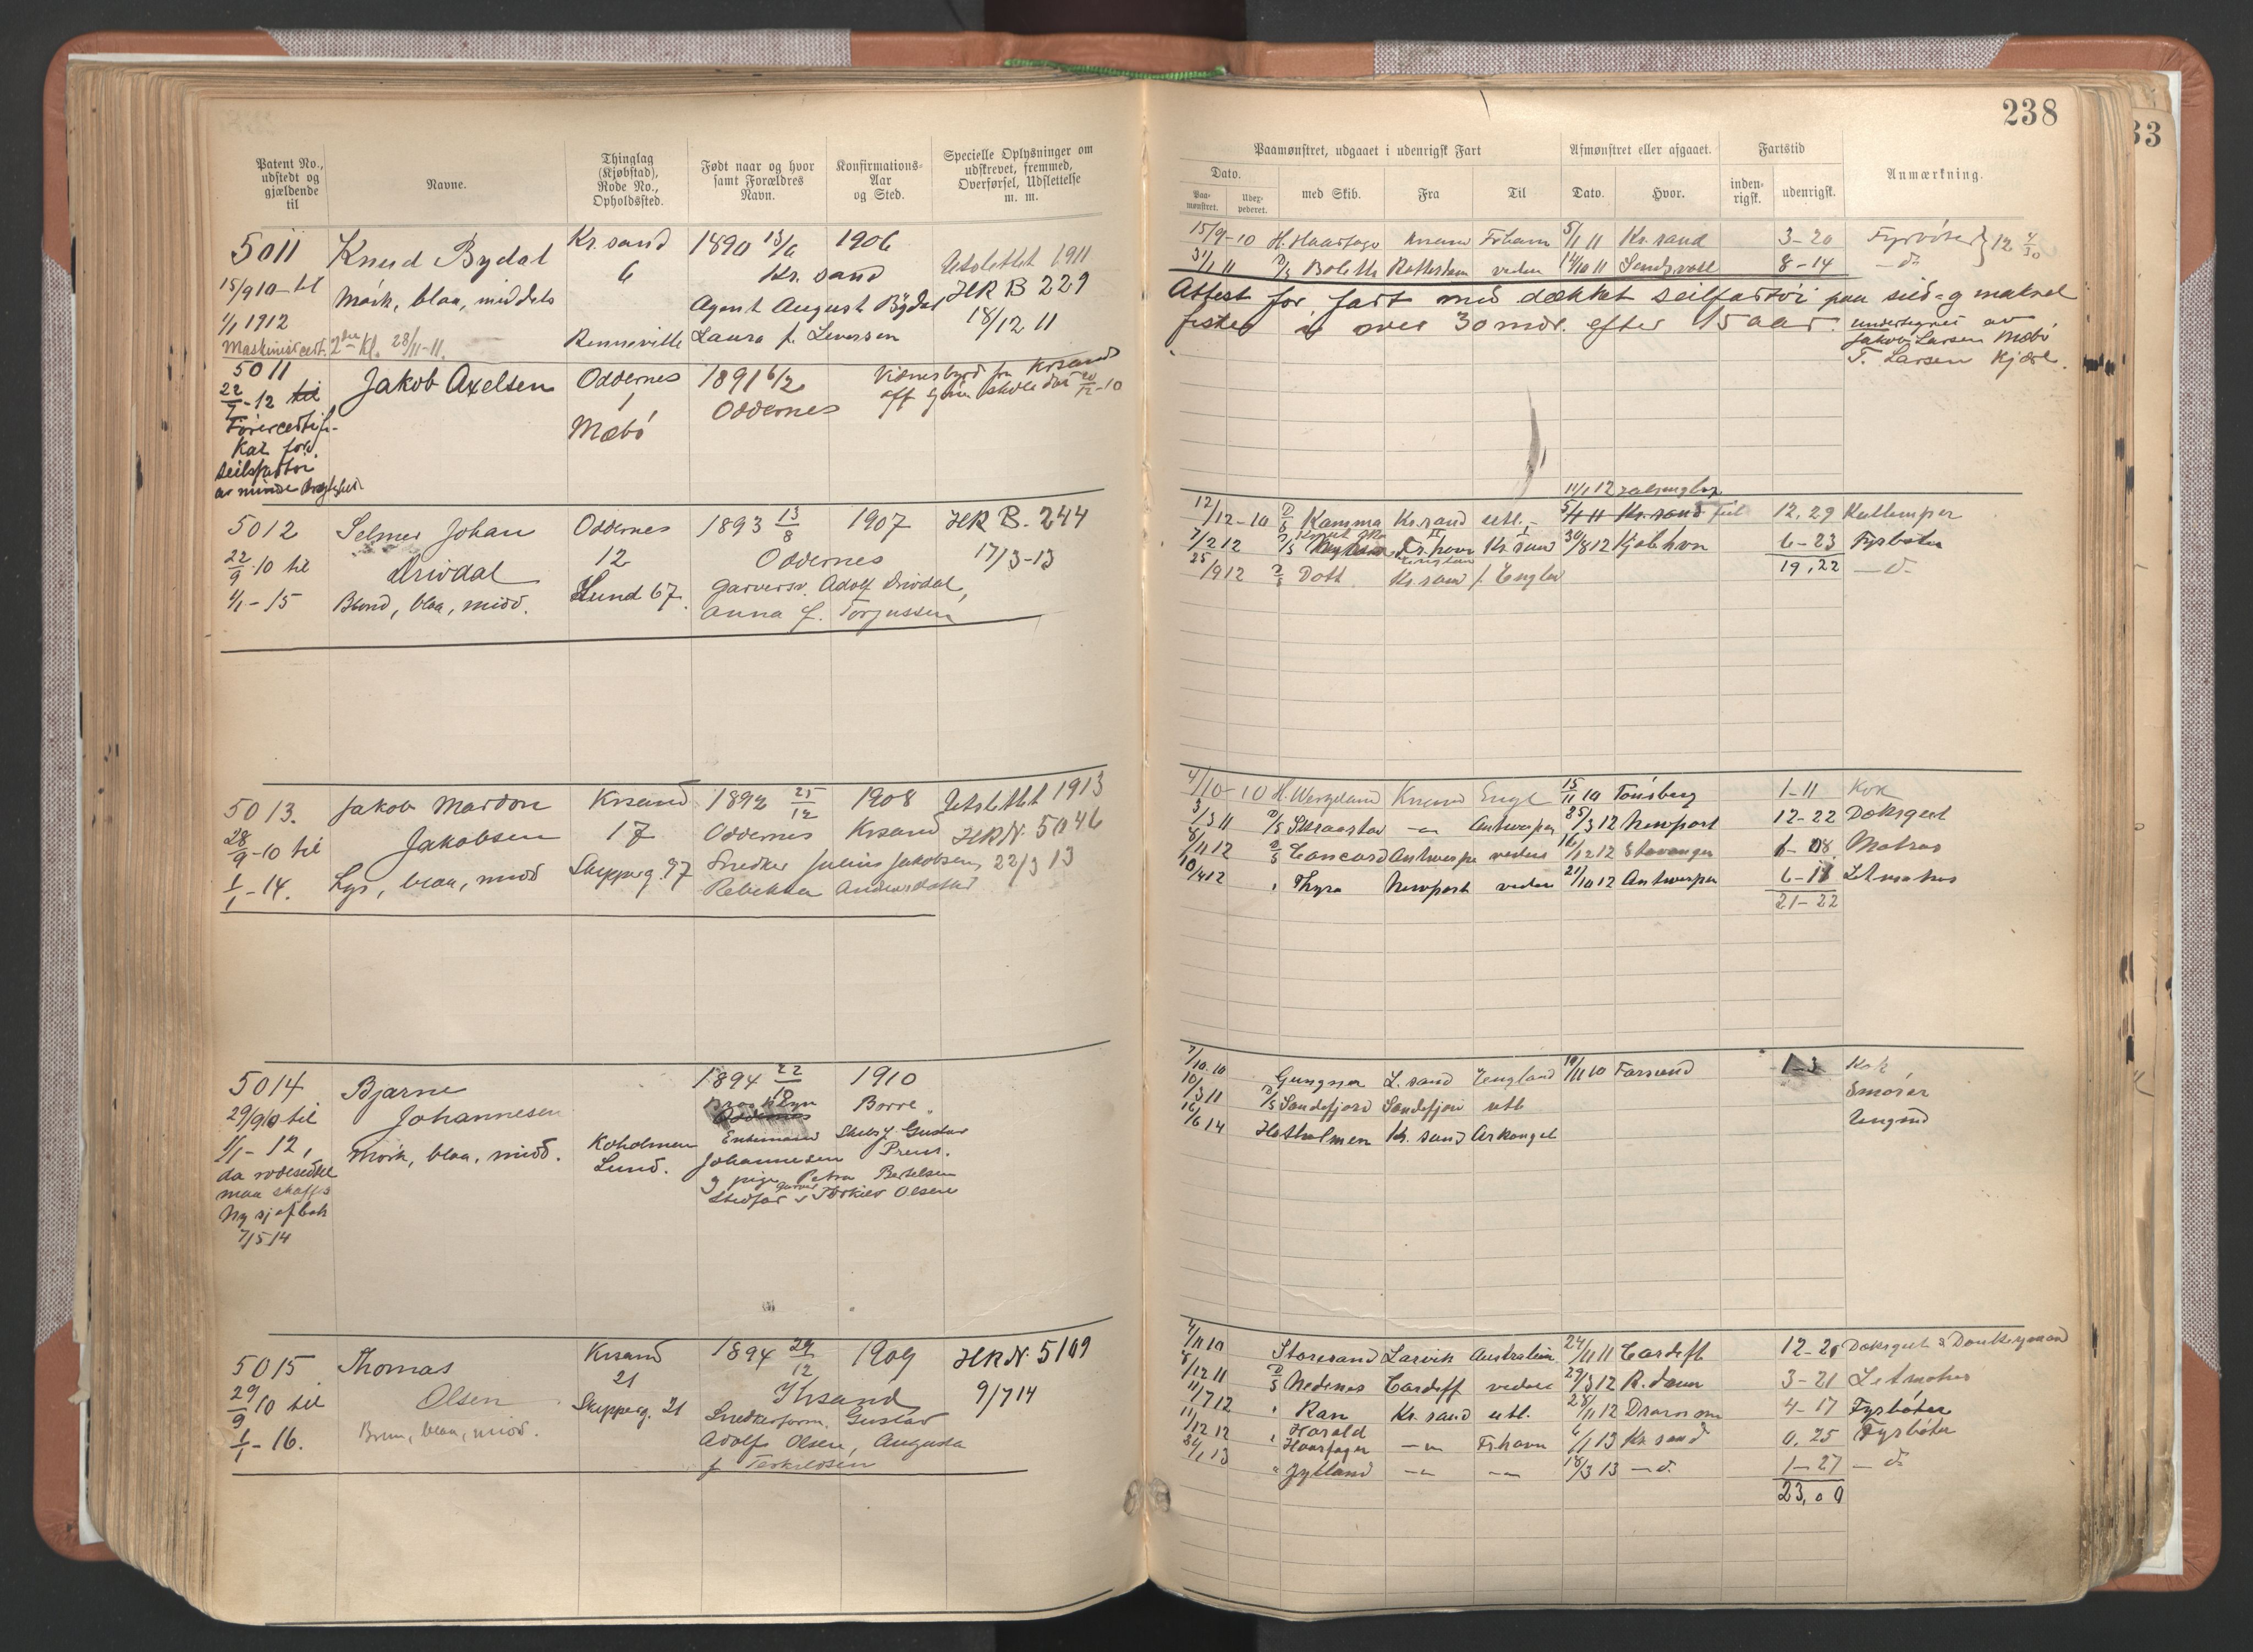 238
33
Patent No., udstedt og gjældende til
Navne.
Thinglag (Kjøbstad), Rode No., Opholdssted.
Født naar og hvor samt Forældres Navn.
Konfirmations-Aar og Sted.
Specielle Oplysninger om udskrevet, fremmed, Overførsel, Udslettelse m. m.
Paamønstret, udgaaet i udenrigsk Fart
Afmønstret eller afgaaet.
Fartstid
Anmærkning.
Dato.
Paa-mønstret.
med Skib.
Fra
Til
Dato.
Hvor.
inden-rigsk.
udenrigsk.
5011 Knud Bydal Kr.sand 1890 13/6 1906
6 Kr. sand Utslettet 1911
15/9 10 til Mørk, blaa, middels Agent August Bydal HR B 229
1/1 1912 Laura f. Leversen 18/12 11
Maskinistcert. 2den Kl. 28/11-11.
15/9-10 H. Haarfagr Krsand Fr.havn 5/1 11 Kr.sand 3-20 Fyrbøter
Rotterdam 14/10 11 8-14 — d.
5011 Jakob Axelsen Oddernes 1891 6/2
22/7-12 til 1 Oddernes
Mæbø
Førercertifi-
kat for
seilfartøi
av minde
Attest for fart med dækket seilfartøi paa sild- g makrel
fiske i over 30 mdr. efter 15 aar. undertegnet av
Jakob Larsen Mæbø
T. Larsen Kjære.
5012 Selmer Johan Oddernes 1893 13/8 1907 HR B. 244
22/9-10 til Drivdal 12 Oddernes 17/3-13
1/1-15 Blond, blaa, midd. Lund 67. Garversv. Adolf Drivdal,
Anna f. Torjussen
12/12-10 Kamma Kr.sand utl. 5/1 11 Kr.sand 12.29 Kullemper
7/2 12 Fr.havn Kr.sand 30/8 12 Kjøbhvn 6-23 Fyrbøter
25/9 12 Dott Kr.sand f. England 19,22 — d.
5013. Jakob Mardon Krsand 1892 25/12 1908 Utslettet 1913
28/9-10 til Jakobsen 17 Oddernes Krsand HR N. 5046
1/1-14. Lys, blaa, midd Skipperg. 97 Snedker Julius Jakobsen, 22/3 13
Rebekka Andersdatter
4/10-10 H. Wergeland Krsand Engl 15/11 10 Tønsberg 1-11 Kok
3/3 11 — Antwerpen 25/3 12 Newport 12-22 Dæksgut
8/11 12 Concord Antwerpen 16/12 12 Stavanger 1-08. Matros
10/4 12 Thyra Newport 21/10 12 Antwerpen Letmatros
21-22
5014 Bjarne 1894 22/12 1910
29/9 10 til Johannesen Borre
1/1-12, Mørk, blaa, midd. Koholmen Enkemand Skibsf. Gustav
da rodeseddel Lund. Johannesen
maa skaffes g pige Petra Bertelsen
Ny sjøfbok Stedfar garver Torkild Olsen
7/5 14
7/10.10 Gungner England 19/11 10 Farsund 1-3 Kok
10/3 11 Sandefjord Sandefjord utl Smører
16/6 14 Hestholmen Kr. sand Arkangel
5015 Thomas Krsand 1894 29/12 1909 HR N. 5109
29/9 10 til Olsen 21 Krsand 9/7 14
1/1-16. Brun, blaa, midd. Skipperg. 21 Snedkerform. Gustav
Adolf Olsen, Augusta
f Terkildsen
4/11 10 Storesand Larvik Australien 24/11 11 Cardiff Dæksgut & Donkeymand
8/12 11 Nedenes Cardiff 29/3 12 R.dam 3-21 Letmatros
11/7 12 Ran Kr. sand utl. 28/11 12 Drammen 4-17 Fyrbøter
11/12 12 Harald Haarfager — Fr.havn 6/1 13 Kr sand 0.25 Fyrbøter
24/1 13 Jylland — — 18/3 13 — d. 1-27 — d.
23,00